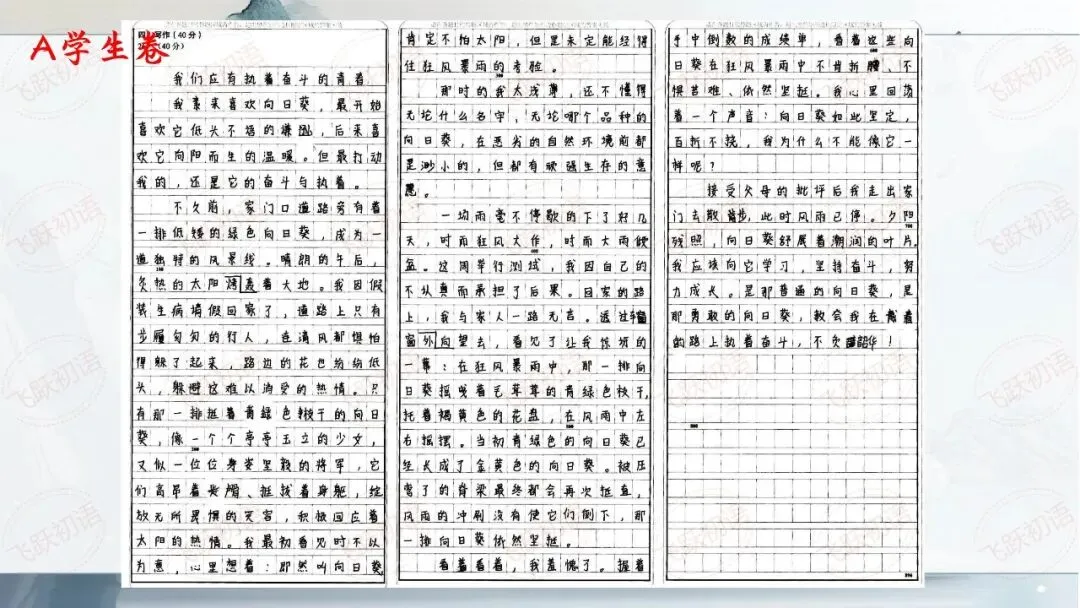 A学生卷
四、写作(40分)
(40分)
我们应有执着奋斗的青春
我素来喜欢向日葵,最开始
喜欢它低头不语的谦逊,后来喜
欢它向阳而生的温暖。但最打动
我的,还是它的奋斗与执着。
不久前,家门口道路旁有着
一排低矮的绿色向日葵,成为一
道独特的风景线。晴朗的午后,
炙热的太阳烤着大地。我因假
装生病请假回家了,道路上只有
步履匆匆的行人,连清风都惧怕
得躲了起来,路边的花也纷纷低
头,躲避这难以消受的热情。只
有那一排挺着青绿色枝干的向日
葵,像一个个亭亭玉立的少女,
又似一位位身姿坚毅的将军,它
们高昂着头颅、挺拔着身躯,绽
放无所畏惧的笑容,积极回应着
太阳的热情。我最初看见时不以
为意,心里想着:既然叫向日葵
肯定不怕太阳,但是未定能经得
住狂风暴雨的考验。
那时的我太浅薄,还不懂得
无论什么名字,无论哪个品种的
向日葵,在恶劣的自然环境前都
是渺小的,但都有顽强生存的意
愿。
一场雨毫不停歇的下了好几
天,时而狂风大作,时而大雨倾
盆。这周举行测试,我因自己的
不认真而承担了后果。回家的路
上,我与家人一路无言。透过车窗
窗外向望去,看见了让我惊讶的
一幕:在狂风暴雨中,那一排向
日葵摇曳着毛茸茸的青绿色枝干,
托着褐黄色的花盘,在风雨中左
右摇摆。当初青绿色的向日葵已
经长成了金黄色的向日葵。被压
弯了的脊梁最终都会再次挺直,
风雨的冲刷没有使它们倒下,那
一排向日葵依然坚挺。
看着看着,我羞愧了。握着
手中倒数的成绩单,看着这些向
日葵在狂风暴雨中不肯折腰、不
惧苦难、依然坚挺。我心里回荡
着一个声音:向日葵如此坚定,
百折不挠,我为什么不能像它一
样呢?
接受父母的批评后我走出家
门去散步,此时风雨已停。夕阳
残照,向日葵舒展着潮润的叶片。
我应该向它学习,坚持奋斗,努
力成长。是那普通的向日葵,是
那勇敢的向日葵,教会我在青春
的路上执着奋斗,不负韶华!
飞跃初语